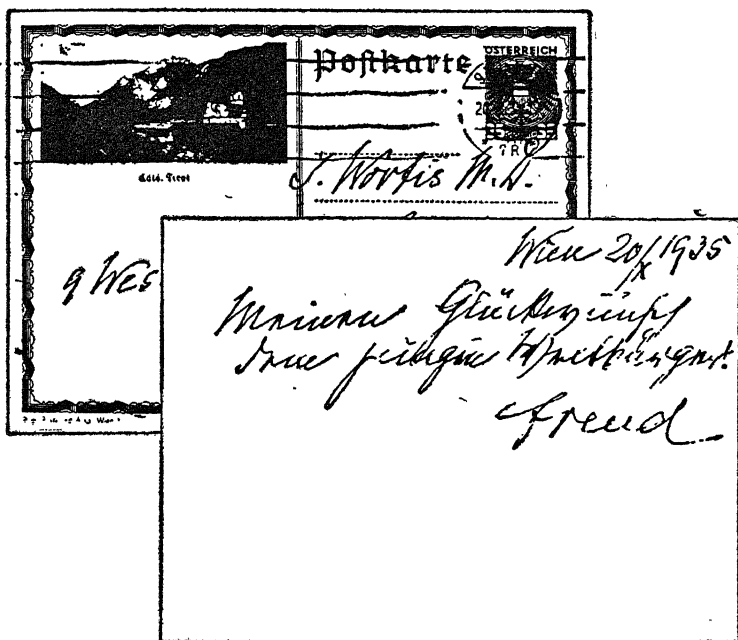 Postkarte
ÖSTERREICH
J. Wortis M.D.
9 Wes
Wien 20/X 1935
Meinen Glückwunsch
dem jungen Weltbürger!
Freud